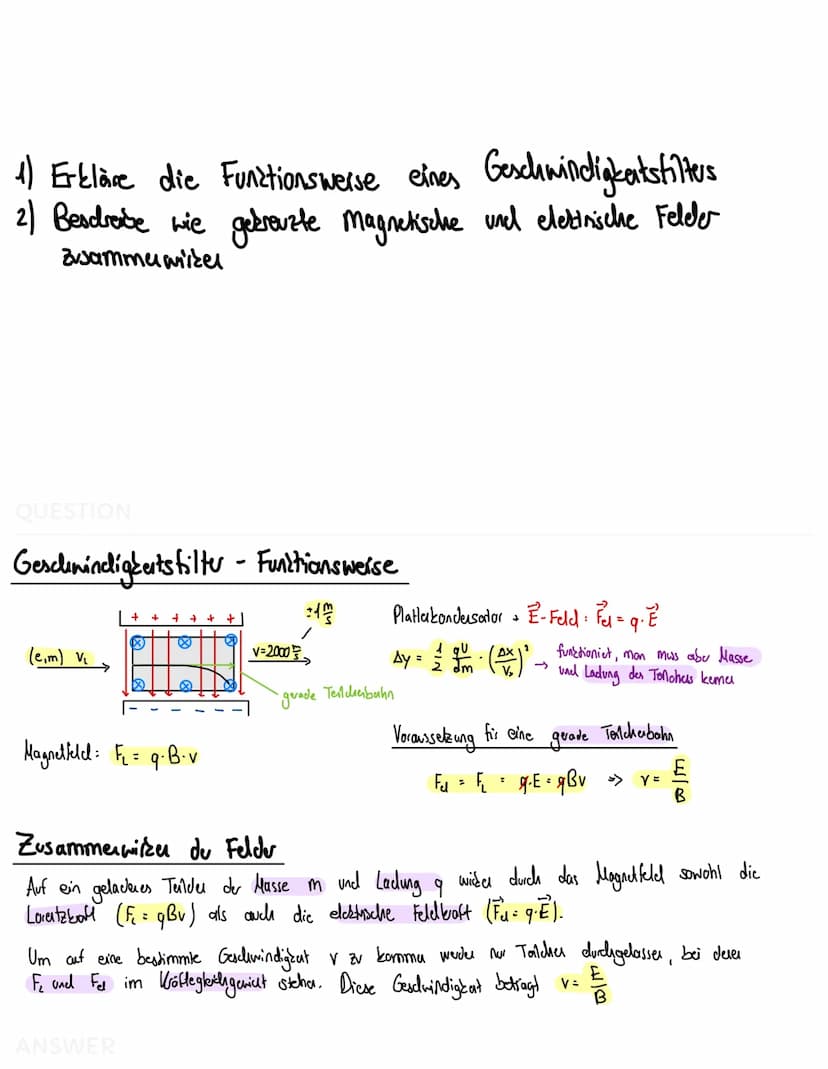 1) Erkläre die Funktionsweise eines Geschwindigkeitsfilters
2) Beschreibe wie gekreuzte Magnetische und elektrische Felder
zusammenwirken
QUESTION
Geschwindigkeitsfilter - Funktionsweise
(e,m) v₁
+ + + + + +
- - - - - - -
v=2000 m/s
±1 m/s
gerade Teilchenbahn
Plattenkondensator → E⃗-Feld: F⃗el = q · E⃗
Δy = 1/2 qU/dm · (Δx/v₀)² → funktioniert, man muss aber Masse
und Ladung des Teilchens kennen
Magnetfeld: F_L = q·B·v
Voraussetzung für eine gerade Teilchenbahn
Fel = F_L = q·E = qBv => v = E/B
Zusammenwirken der Felder
Auf ein geladenes Teilchen der Masse m und Ladung q wirken durch das Magnetfeld sowohl die
Lorentzkraft (F_L = qBv) als auch die elektrische Feldkraft (F⃗el = q·E⃗).
Um auf eine bestimmte Geschwindigkeit v zu kommen werden nur Teilchen durchgelassen, bei denen
F_L und Fel im Kräftegleichgewicht stehen. Diese Geschwindigkeit beträgt v = E/B
ANSWER